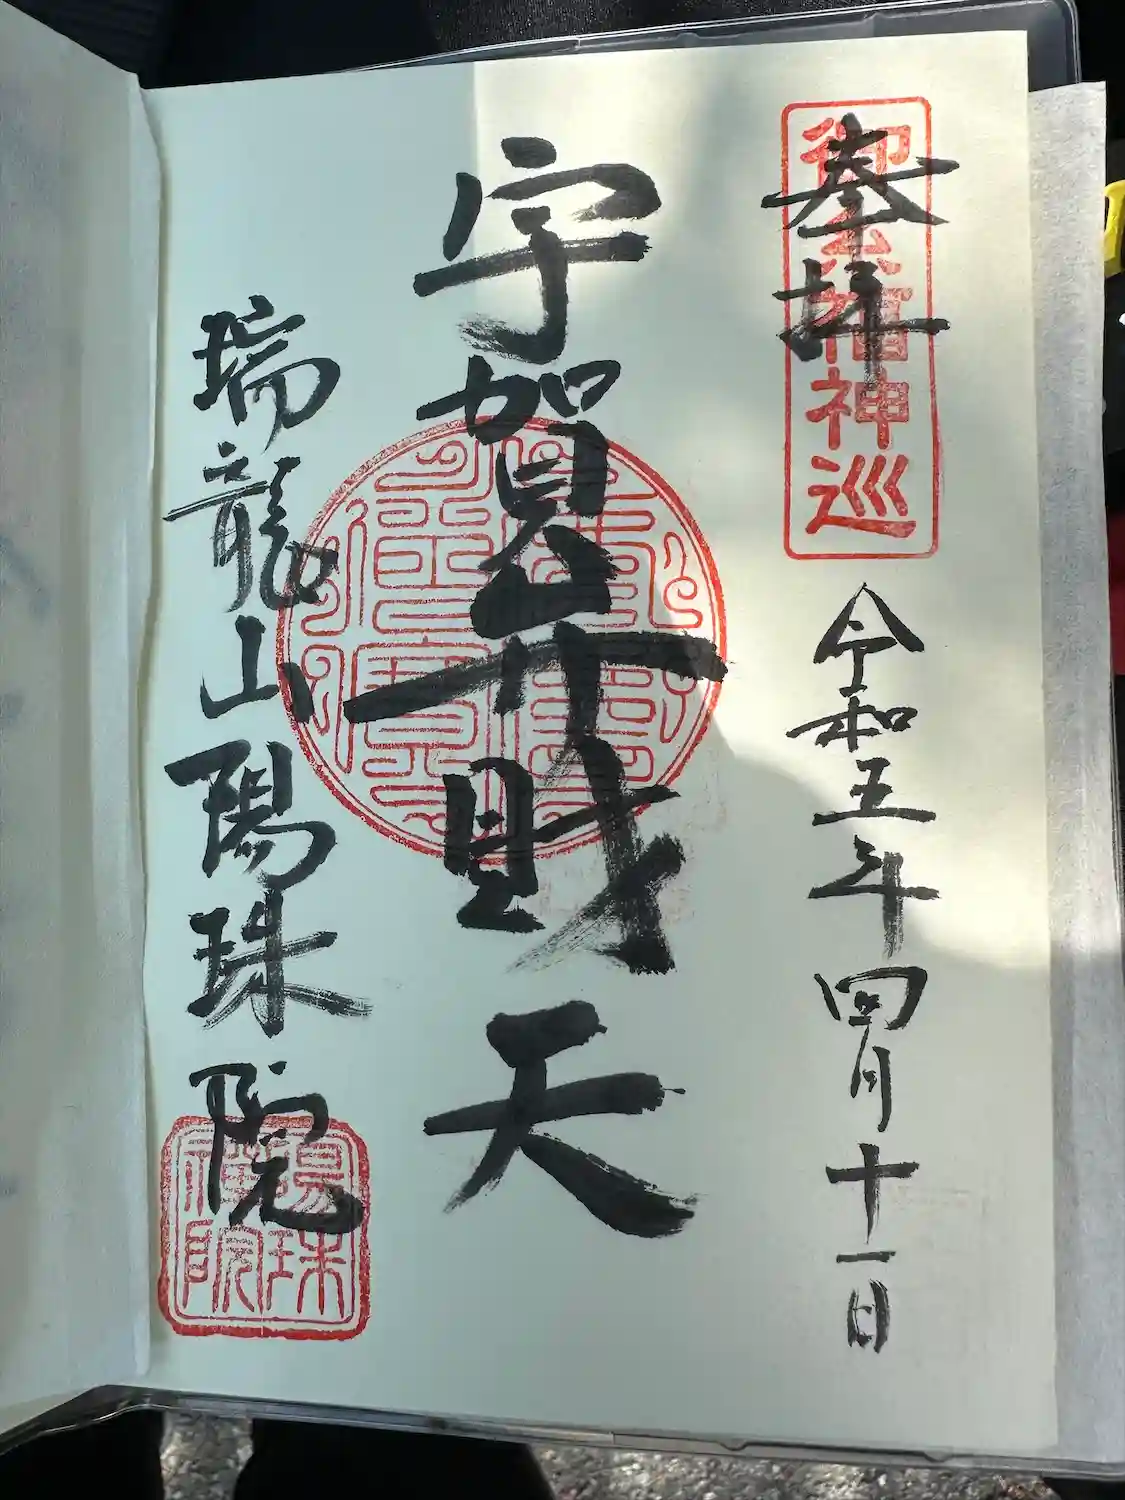 奉拝
福神巡
令和五年四月十一日
宇賀弁財天
瑞龍山陽珠院
陽珠
禪院